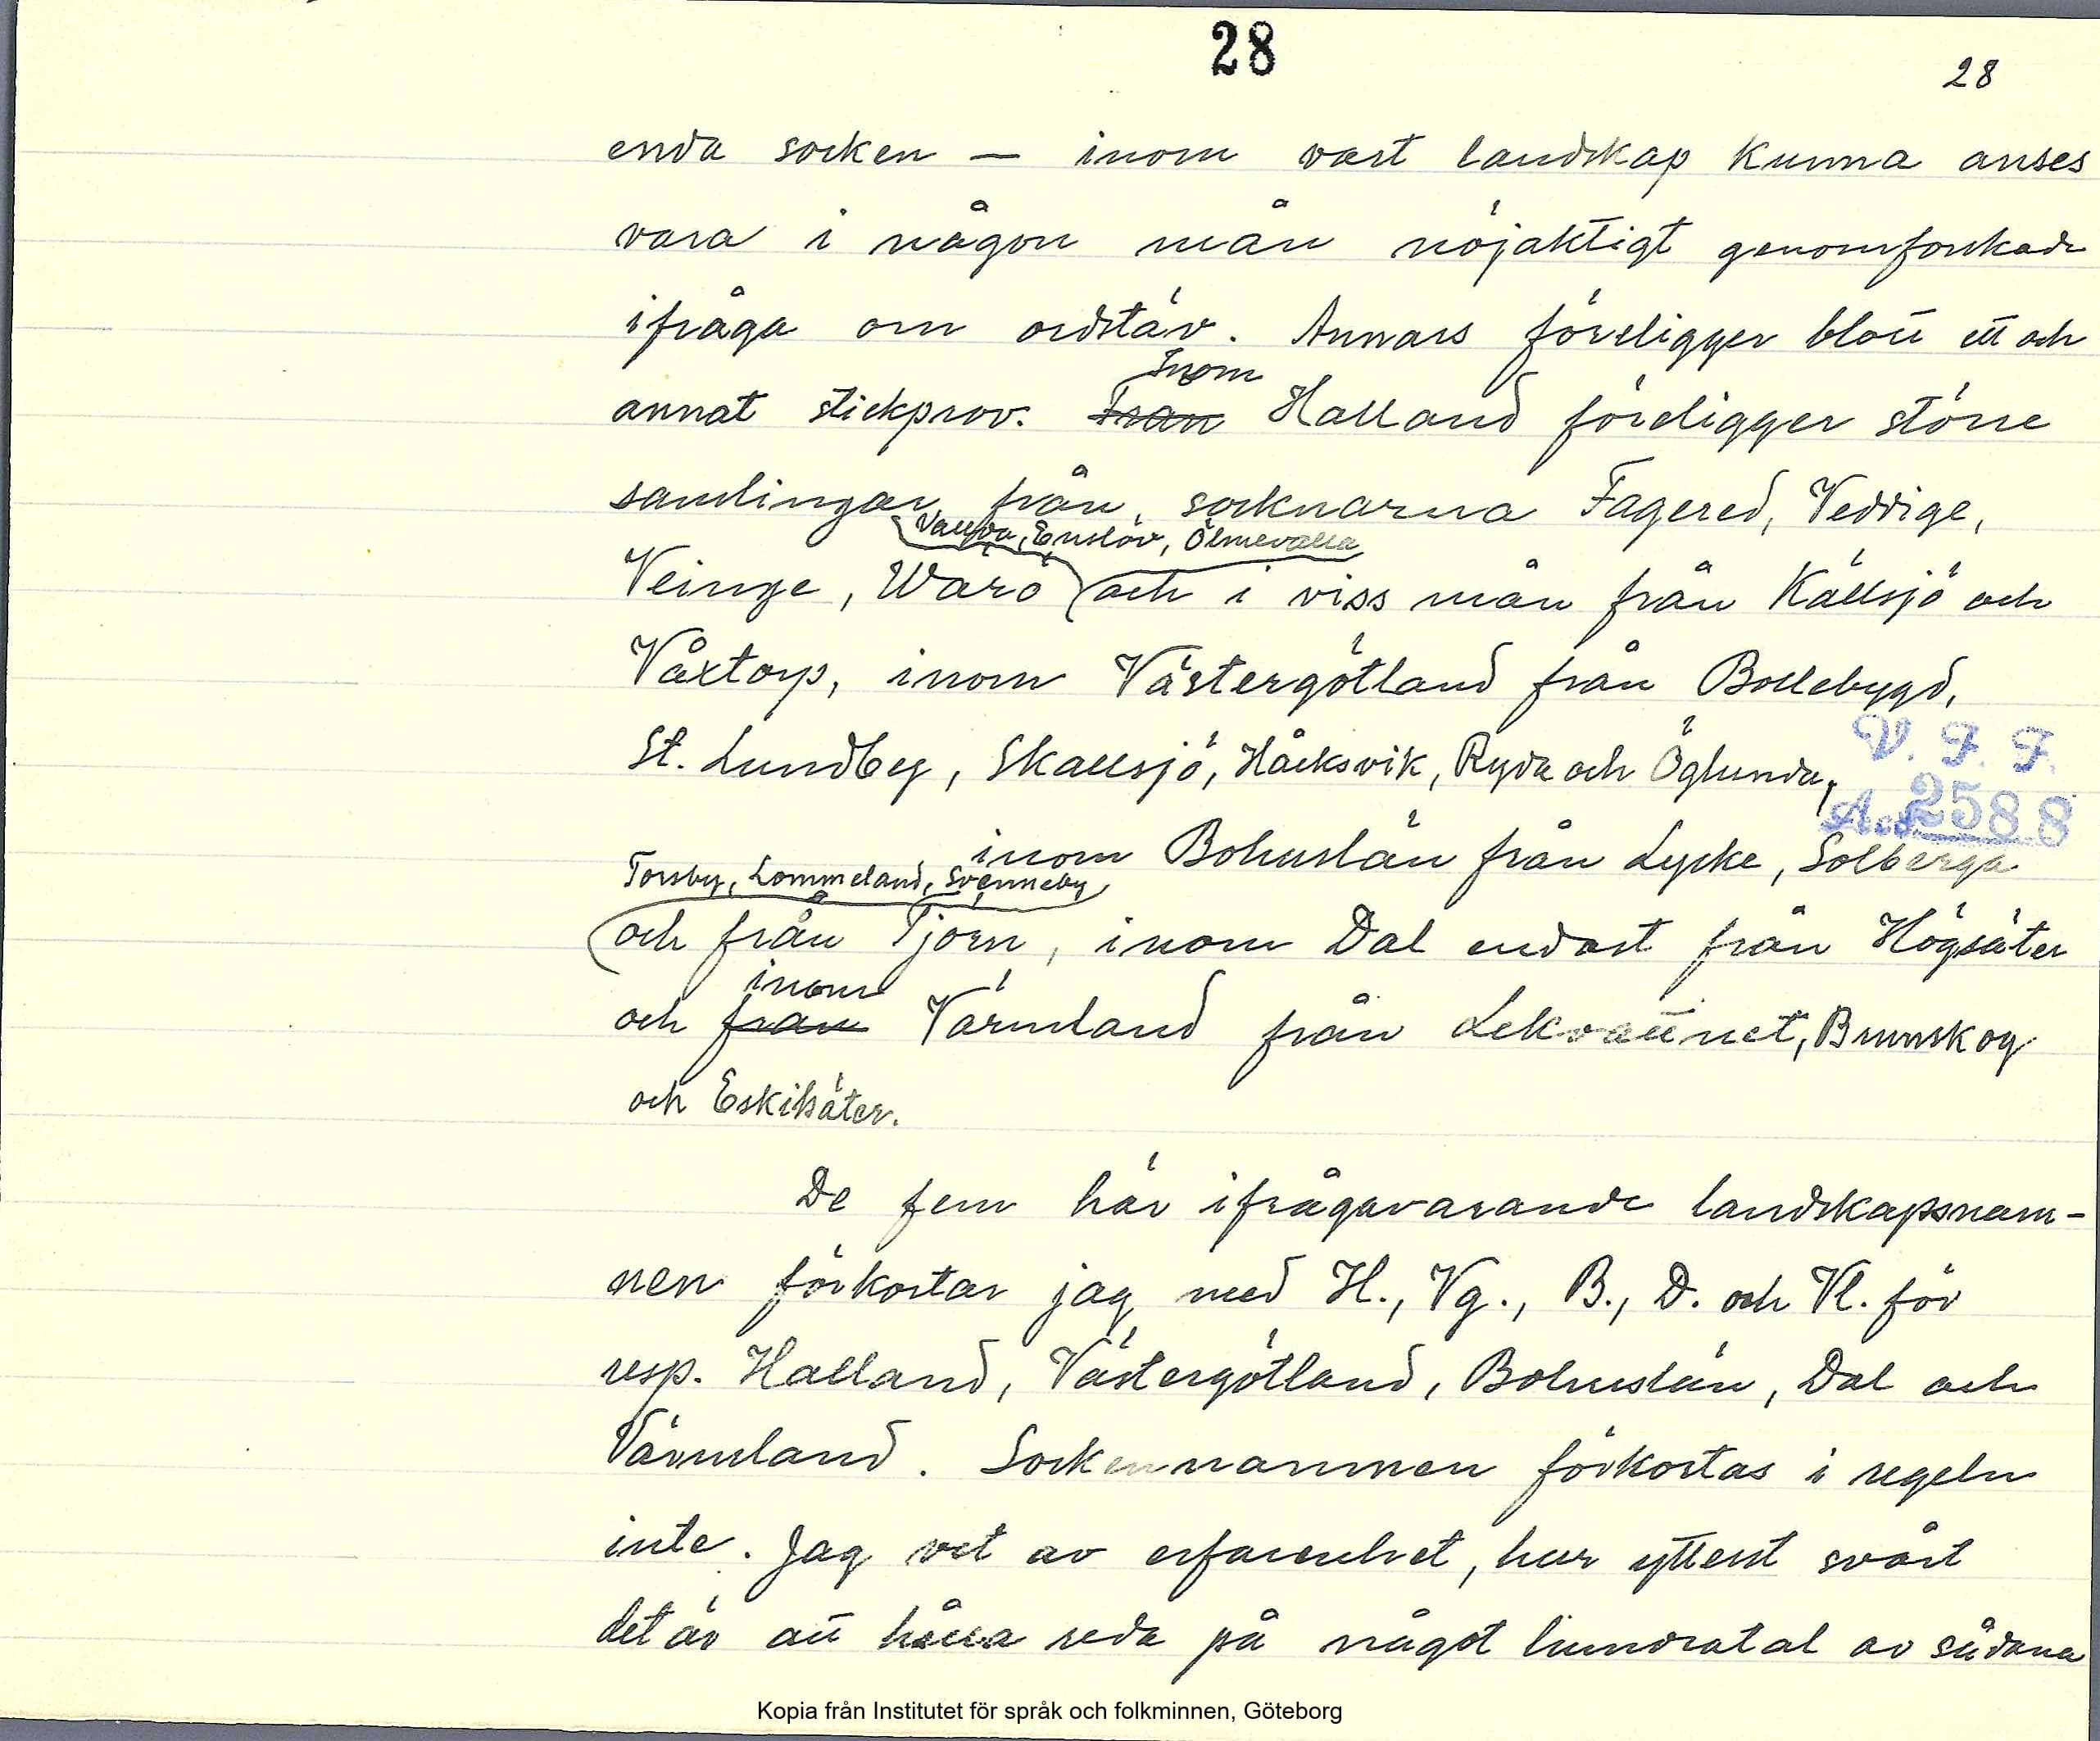 28
28
enda socken — inom vart landskap kunna anses
vara i någon mån nöjaktigt genomforskade
ifråga om ordstäv. Annars föreligger blott ett och
annat stickprov. ~~Från~~ Inom Halland föreligger större
samlingar från socknarna Fagered, Veddige,
Vallda, Enslöv, Ölmevalla
Veinge, Wärö och i viss mån från Källsjö och
Våxtorp, inom Västergötland från Bollebygd,
St. Lundby, Skallsjö, Håcksvik, Ryda och Öglunda,
V. F. F.
Acc. 2588
inom Bohuslän från Lycke, Solberga
Torsby, Lommeland, Svenneby
och från Tjörn, inom Dal endast från Högsäter
och ~~från~~ inom Värmland från Lekvattnet, Brunskog
och Eskilsäter.
De fem här ifrågavarande landskapsnam-
nen förkortar jag med H., Vg., B., D. och Vl. för
resp. Halland, Västergötland, Bohuslän, Dal och
Värmland. Sockennamnen förkortas i regeln
inte. Jag vet av erfarenhet, hur ytterst svårt
det är att hålla reda på något hundratal av sådana
Kopia från Institutet för språk och folkminnen, Göteborg